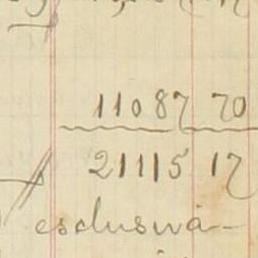 11087 70
21115 17
esclusivà-